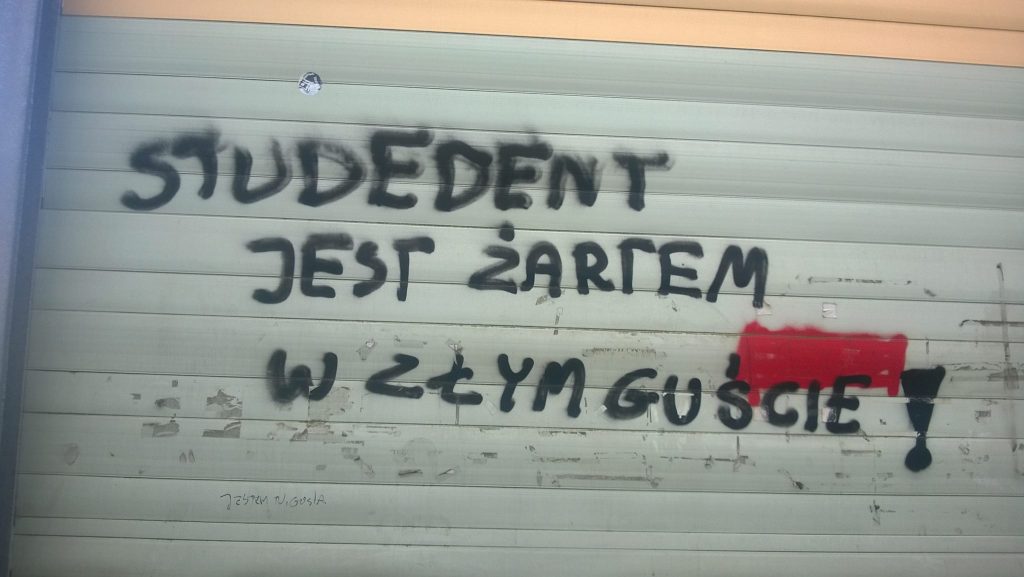 STUDEDENT
JEST ŻARTEM
W ZŁYM GUŚCIE!
JESTEM